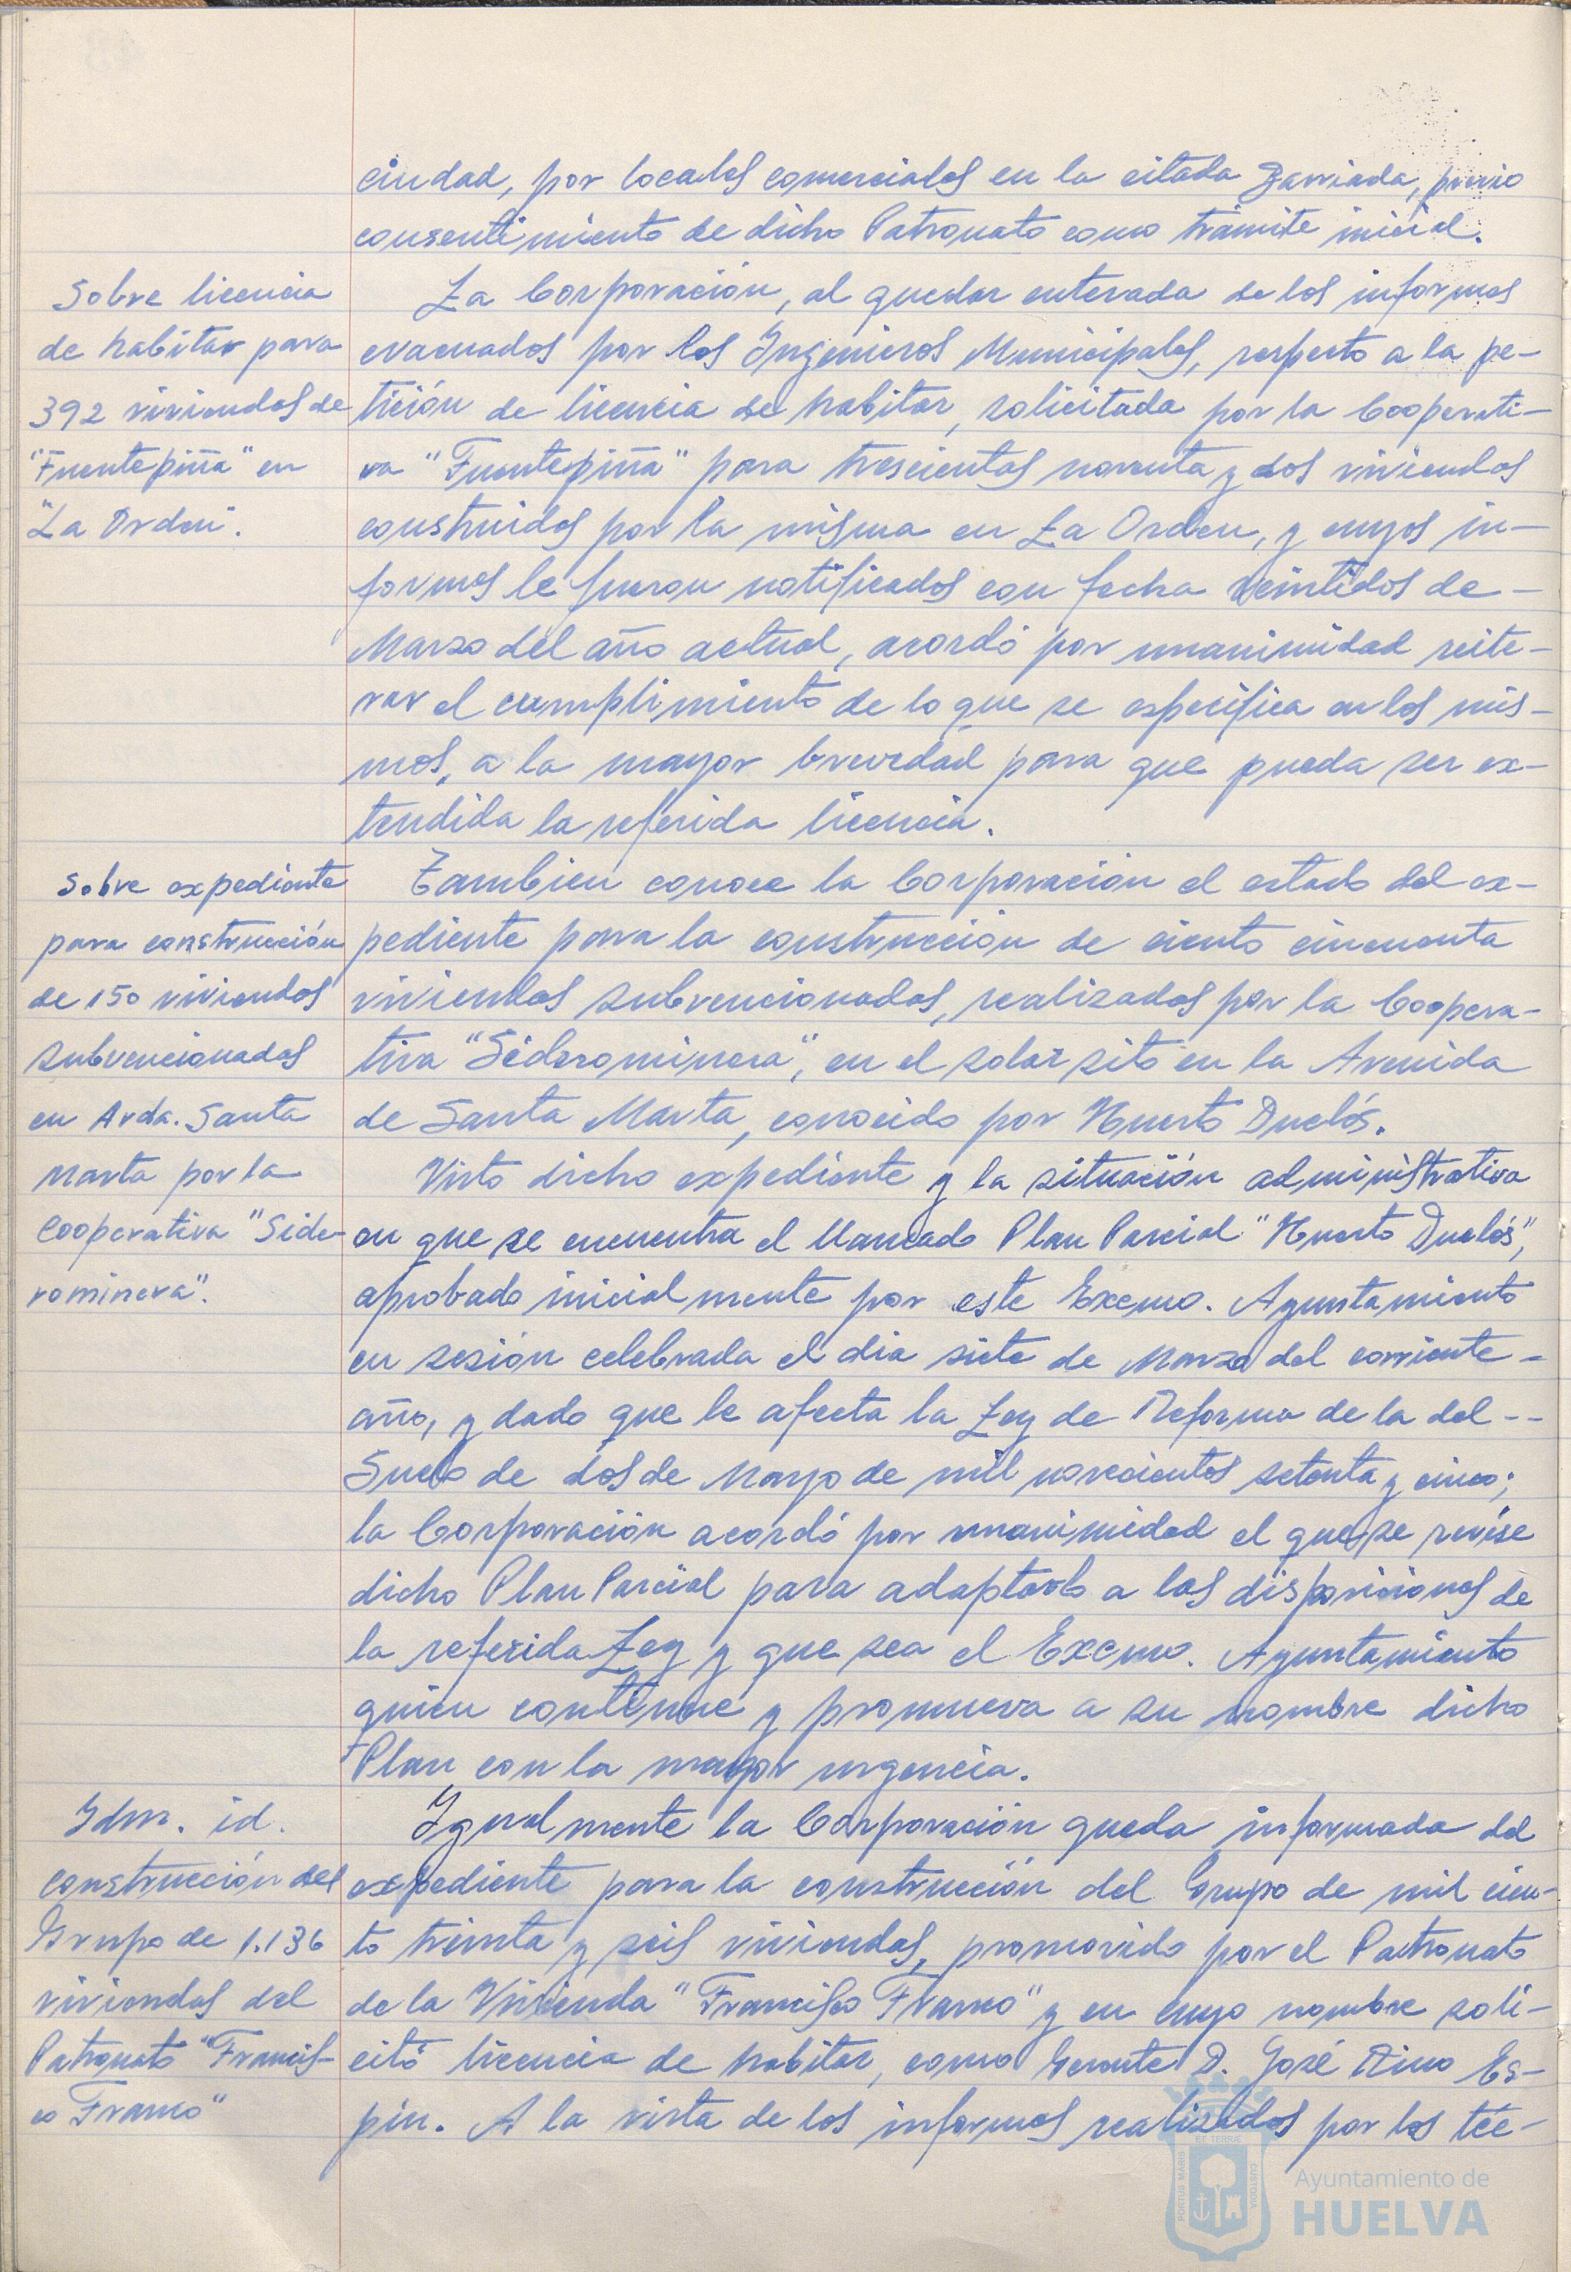 ciudad, por locales comerciales en la citada Barriada, previo
consentimiento de dicho Patronato como trámite inicial.
Sobre licencia
de habitar para
392 viviendas de
"Fuentepiña" en
"La Orden".
La Corporación, al quedar enterada de los informes
evacuados por los Ingenieros Municipales, respecto a la pe-
tición de licencia de habitar, solicitada por la Cooperati-
va "Fuentepiña" para trescientas noventa y dos viviendas
construidas por la misma en La Orden, y cuyos in-
formes le fueron notificados con fecha veintidos de -
Marzo del año actual, acordó por unanimidad reite-
rar el cumplimiento de lo que se especifica en los mis-
mos, a la mayor brevedad para que pueda ser ex-
tendida la referida licencia.
Sobre expediente
para construcción
de 150 viviendas
subvencionadas
en Avda. Santa
Marta por la
Cooperativa "Side-
rominera".
Tambien conoce la Corporación el estado del ex-
pediente para la construcción de ciento cincuenta
viviendas subvencionadas, realizadas por la Coopera-
tiva "Siderominera", en el solar sito en la Avenida
de Santa Marta, conocido por Huerto Duclós.
Visto dicho expediente y la situación administrativa
en que se encuentra el llamado Plan Parcial "Huerto Duclós",
aprobado inicialmente por este Excmo. Ayuntamiento
en sesión celebrada el dia siete de Marzo del corriente -
año, y dado que le afecta la Ley de Reforma de la del --
Suelo de dos de Mayo de mil novecientos setenta y cinco;
la Corporación acordó por unanimidad el que se revise
dicho Plan Parcial para adaptarlo a las disposiciones de
la referida Ley y que sea el Excmo. Ayuntamiento
quien continue y promueva a su nombre dicho
Plan con la mayor urgencia.
Idm. id.
construcción del
Grupo de 1.136
viviendas del
Patronato "Francis-
co Franco"
Igualmente la Corporación queda informada del
expediente para la construcción del Grupo de mil cien-
to treinta y seis viviendas, promovido por el Patronato
de la Vivienda "Francisco Franco" y en cuyo nombre soli-
citó licencia de habitar, como Gerente D. José Rino Es-
pin. A la vista de los informes realizados por los téc-
PORTUS MARIS
ET TERRAE
CUSTODIA
Ayuntamiento de
HUELVA